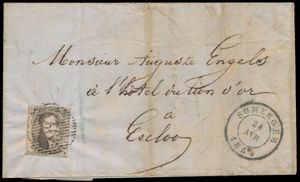 Monsieur Auguste Engels
à l'hôtel du lion d'or
à
Eecloo
SOMERGEM
24
AVR
1854